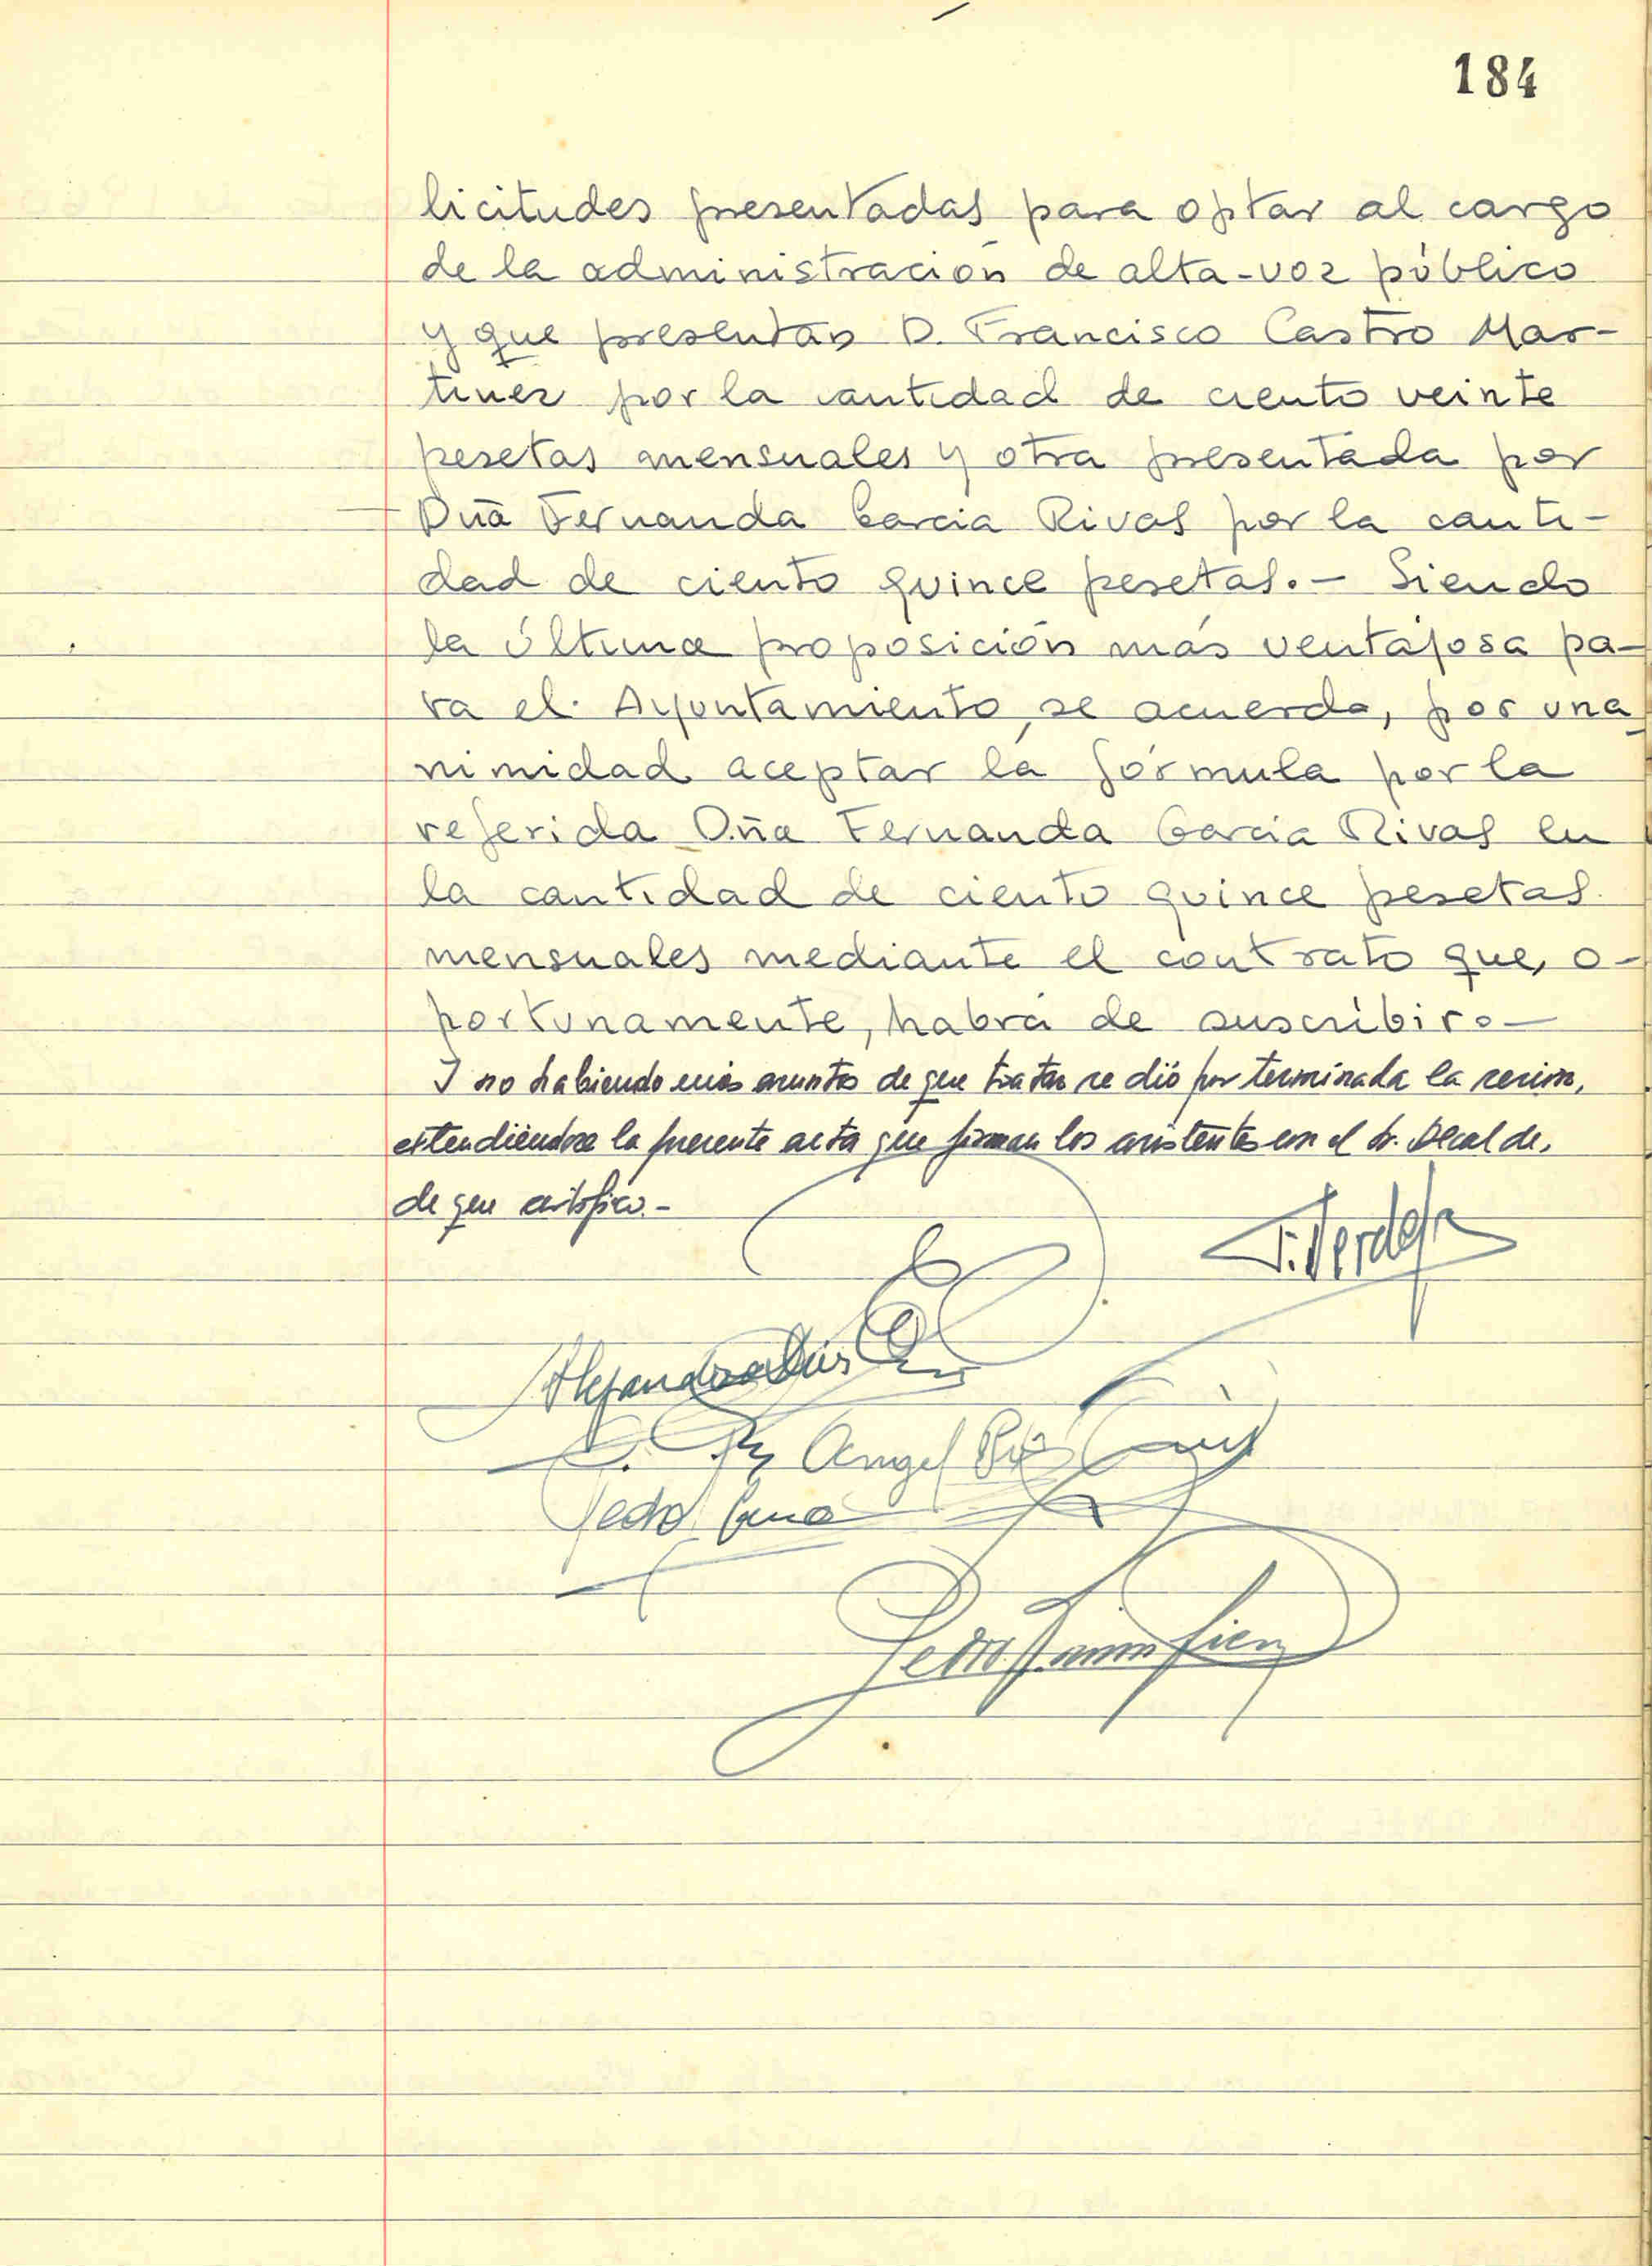 184
licitudes presentadas para optar al cargo
de la administración de alta-voz público
y que presentan D. Francisco Castro Mar-
tinez por la cantidad de ciento veinte
pesetas mensuales y otra presentada por
Dña Fernanda Garcia Rivas por la canti-
dad de ciento quince pesetas.- Siendo
la última proposición más ventajosa pa-
ra el Ayuntamiento, se acuerda, por una
nimidad aceptar la fórmula por la
referida Dña Fernanda Garcia Rivas en
la cantidad de ciento quince pesetas
mensuales mediante el contrato que, o-
portunamente, habrá de suscribir.-
Y no habiendo más asuntos de que tratar se dió por terminada la sesión,
extendiéndose la presente acta que firman los asistentes con el Sr. Alcalde,
de que certifico.-
Alejandro
Angel
Pedro
Pedro